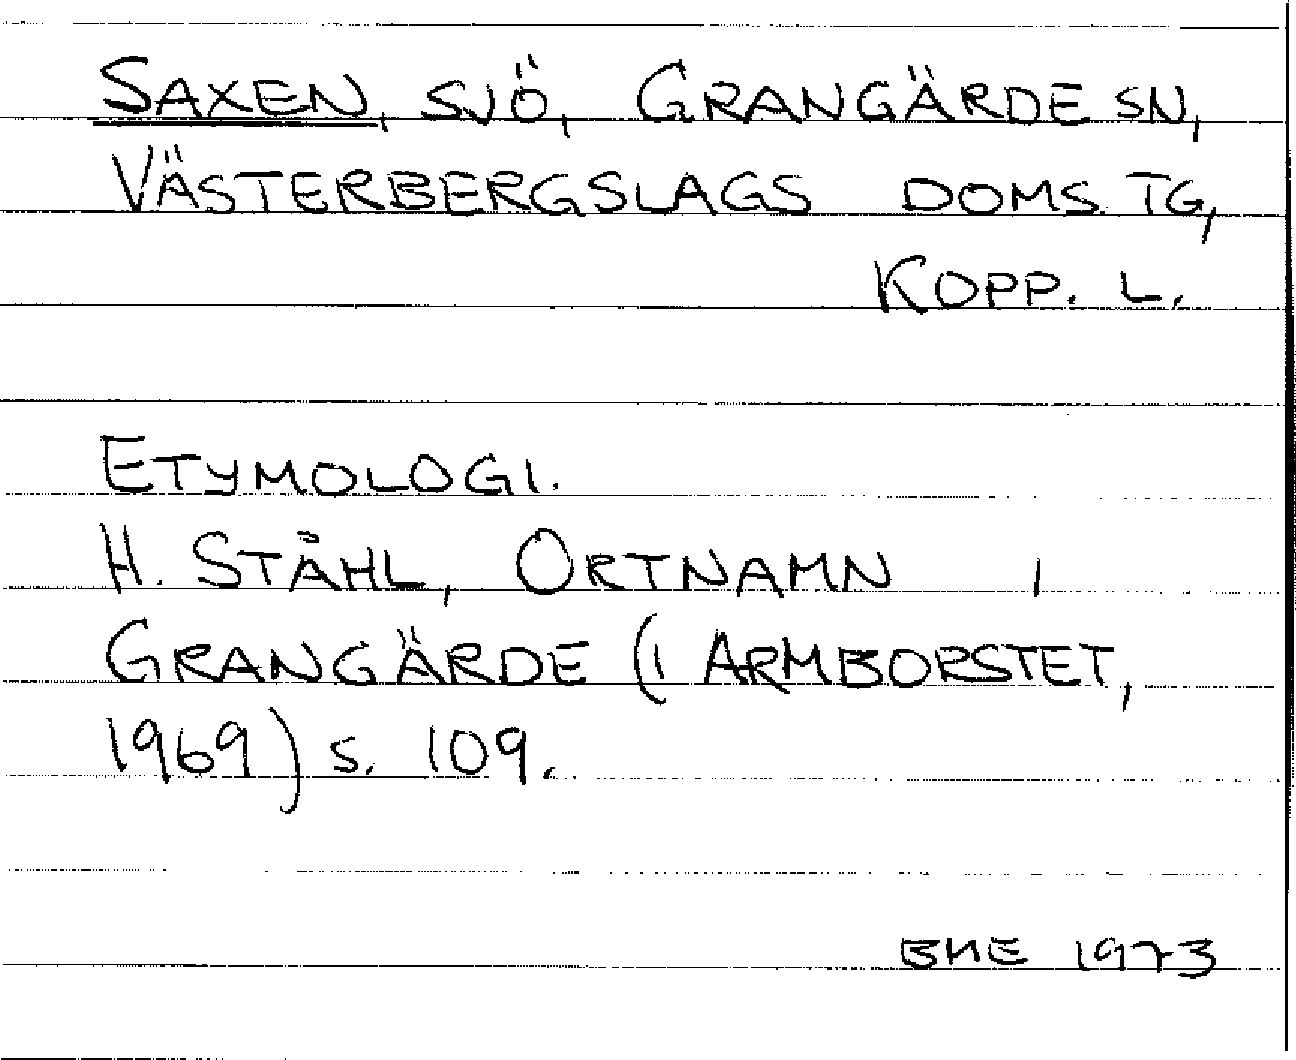 SAXEN, SJÖ, GRANGÄRDE SN,
VÄSTERBERGSLAGS DOMS. TG,
KOPP. L.
ETYMOLOGI.
H. STÅHL, ORTNAMN I
GRANGÄRDE (I ARMBORSTET,
1969) S. 109.
BHE 1973